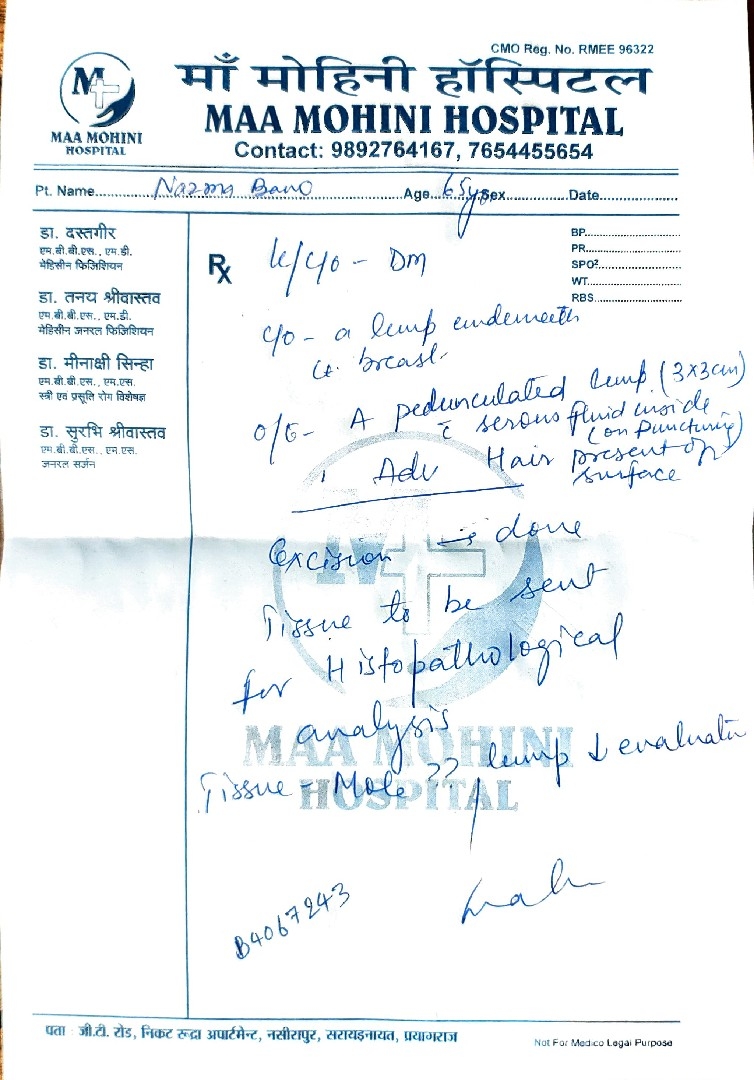 CMO Reg. No. RMEE 96322
माँ मोहिनी हॉस्पिटल
MAA MOHINI HOSPITAL
Contact: 9892764167, 7654455654
M
MAA MOHINI
HOSPITAL
Pt. Name Nazma Bano Age 65y Sex Date
डा. दस्तगीर
एम.बी.बी.एस., एम.डी.
मेडिसीन फिजिशियन
डा. तनय श्रीवास्तव
एम.बी.बी.एस., एम.डी.
मेडिसीन जनरल फिजिशियन
डा. मीनाक्षी सिन्हा
एम.बी.बी.एस., एम.एस.
स्त्री एवं प्रसूति रोग विशेषज्ञ
डा. सुरभि श्रीवास्तव
एम.बी.बी.एस., एम.एस.
जनरल सर्जन
BP
PR
SPO²
WT
RBS
Rx K/C/O - DM
C/O - a lump underneath
Lt. breast
O/E - A pedunculated lump (3x3cm)
c̄ serous fluid inside
(on puncturing)
Adv Hair present on
surface
Excision is done
Tissue to be sent
for Histopathological
analysis
Tissue - Mole ?? lump ↓ evaluatn
MAA MOHINI
HOSPITAL
B4067243
पता : जी.टी. रोड, निकट रूद्रा अपार्टमेन्ट, नसीरापुर, सरायइनायत, प्रयागराज
Not For Medico Legal Purpose